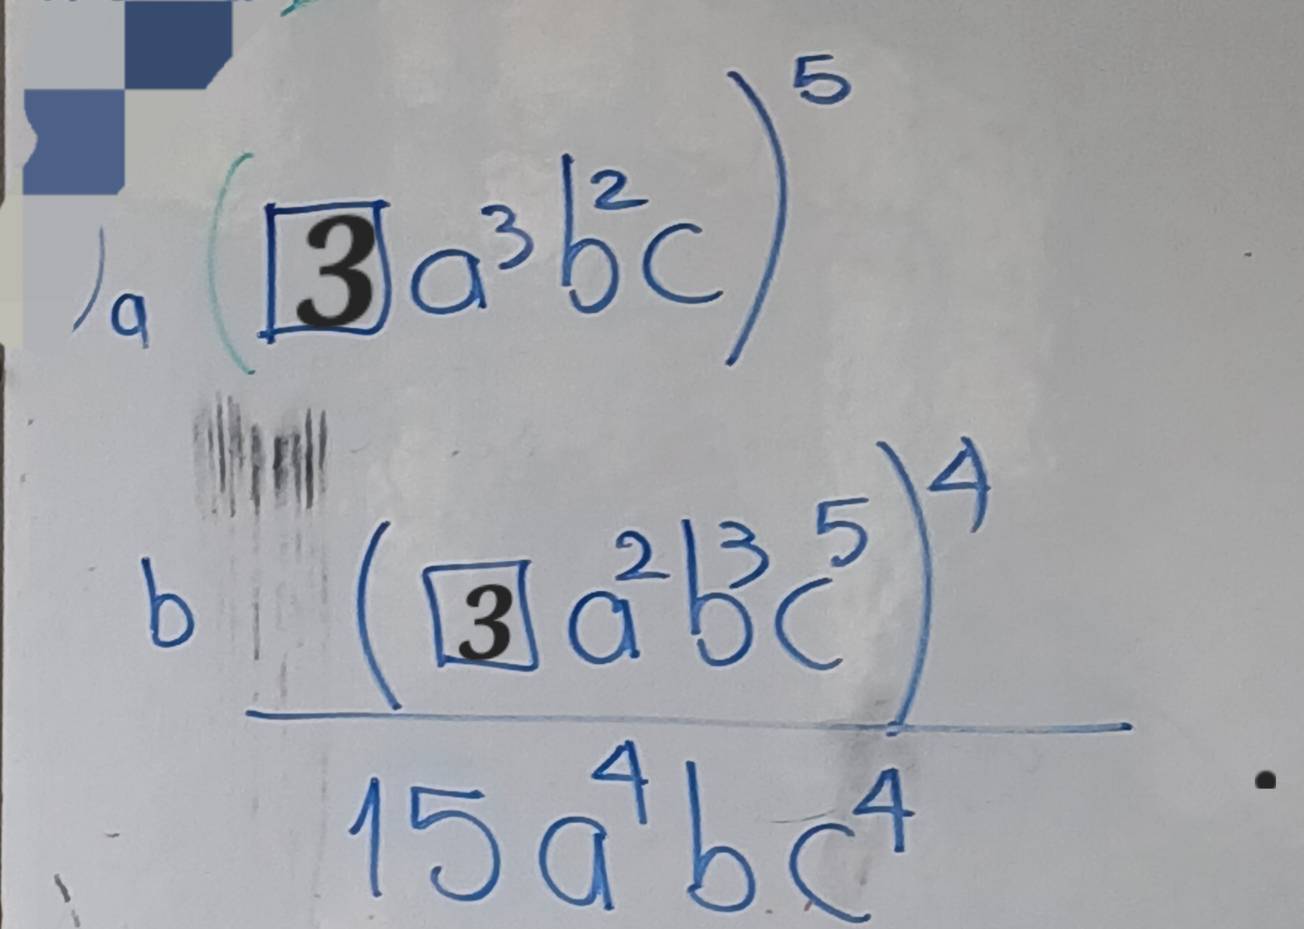 )a (3a³b²c)⁵
b (3a²b³c⁵)⁴
15a⁴bc⁴